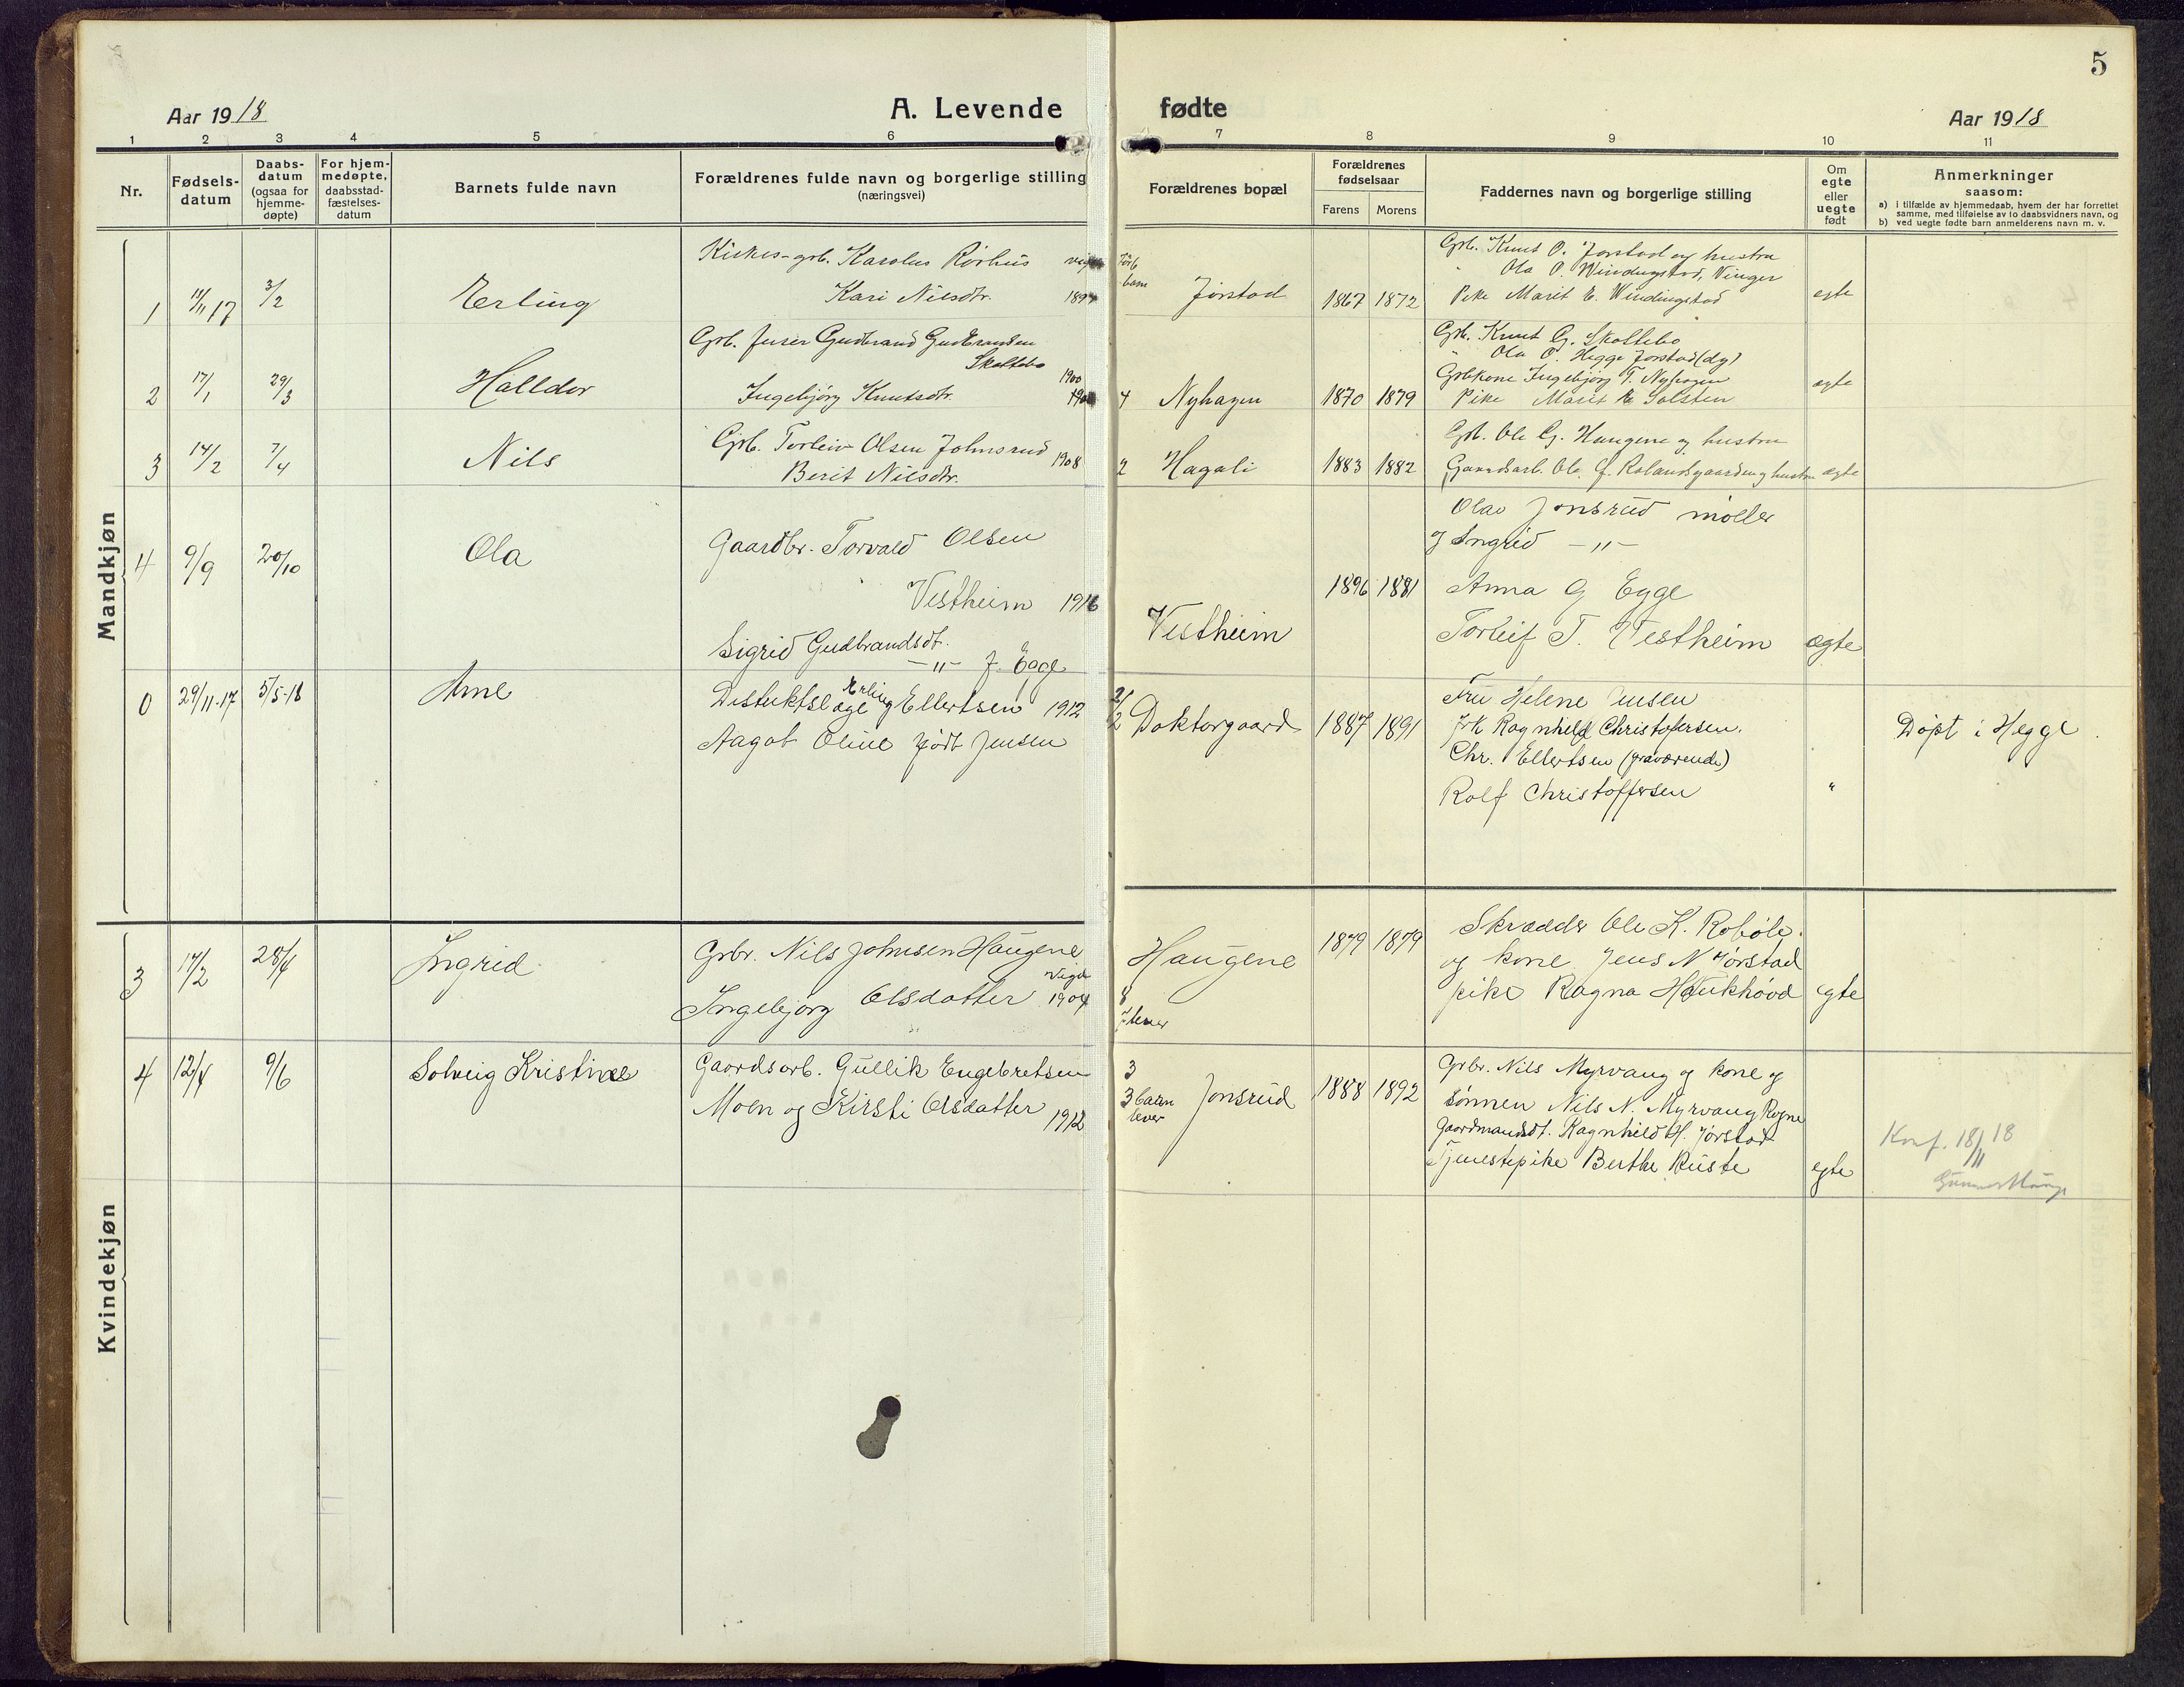 5
Aar 1918
A. Levende
fødte
Aar 1918
1 2 3 4 5 6 7 8 9 10 11
Nr.
Fødsels-
datum
Daabs-
datum
(ogsaa for
hjemme-
døpte)
For hjem-
medøpte,
daabsstad-
fæstelses-
datum
Barnets fulde navn
Forældrenes fulde navn og borgerlige stilling
(næringsvei)
Forældrenes bopæl
Forældrenes
fødselsaar
Farens Morens
Faddernes navn og borgerlige stilling
Om
egte
eller
uegte
født
Anmerkninger
saasom:
a) i tilfælde av hjemmedaab, hvem der har forrettet
samme, med tilføielse av to daabsvidners navn, og
b) ved uegte fødte barn anmelderens navn m. v.
Mandkjøn
1 17 3/2 Erling
Karolus Rørhus
Kari Nilsdtr.
Jørstad 1867 1872
Grb. Knut O. Jørstad og hustru
Ola O. Windingstad, Vinger
Pike Marit E. Windingstad
egte
2 17/1 29/3 Halldor
Grb. Gudbrand Gudbrandsen
Skattebo
Ingebjörg Knutsdtr. 1900
4 Nyhagen 1870 1879
Grb. Knut G. Skattebo
Ola O. Hegge Jørstad (dy)
Grbkone Ingebjörg T. Nyhagen
Pike Marit E Solsten
egte
3 14/2 7/4 Nils
Grb. Torleiv Olsen Johnsrud 1908
Berit Nilsdtr.
2 Hagali 1883 1882
Grb. Ole G. Haugene og hustru
Gaardsarb. Ole J. Rolandsgaarden og hustru egte
4 9/9 20/10 Ola
Gaardbr. Torvald Olsen
Vestheim 1916
Sigrid Gudbrandsdt.
-"- f. Egge
Vestheim 1896 1881
Olav Jonsrud møller
og Ingrid -"-
Anna G Egge
Torleif T. Vestheim
egte
0 29/11-17 5/5-18 Arne
Distriktslæge Erling Ellertsen 1912
Aagot Oline født Jensen
2/2 Doktorgaard 1887 1891
Fru Helene Jensen
Frk Ragnhild Christofersen.
Chr. Ellertsen (fraværende)
Rolf Christoffersen
"
Døpt i Hegge.
Kvindekjøn
3 17/2 28/4 Ingrid
Grbr. Nils Johnsen Haugene
Ingebjørg Olsdatter viget 1904
Haugene 1879 1879
8
7 lever
Skrædder Ole K. Robøle.
og kone Jens N Jørstad
pike Ragna Haukhövd
egte
4 12/4 9/6 Solveig Kristine
Gaardsarb. Gullik Engebretsen
Moen og Kirsti Olsdatter 1912
3
3 barn
lever
Jonsrud 1888 1892
Grbr. Nils Myrvang og kone og
sønnen Nils N. Myrvang Rogne
Gaardmandsdt. Ragnhild H. Jørstad
Tjenestepike Berthe Ruste
egte
Konf. 18/11 18